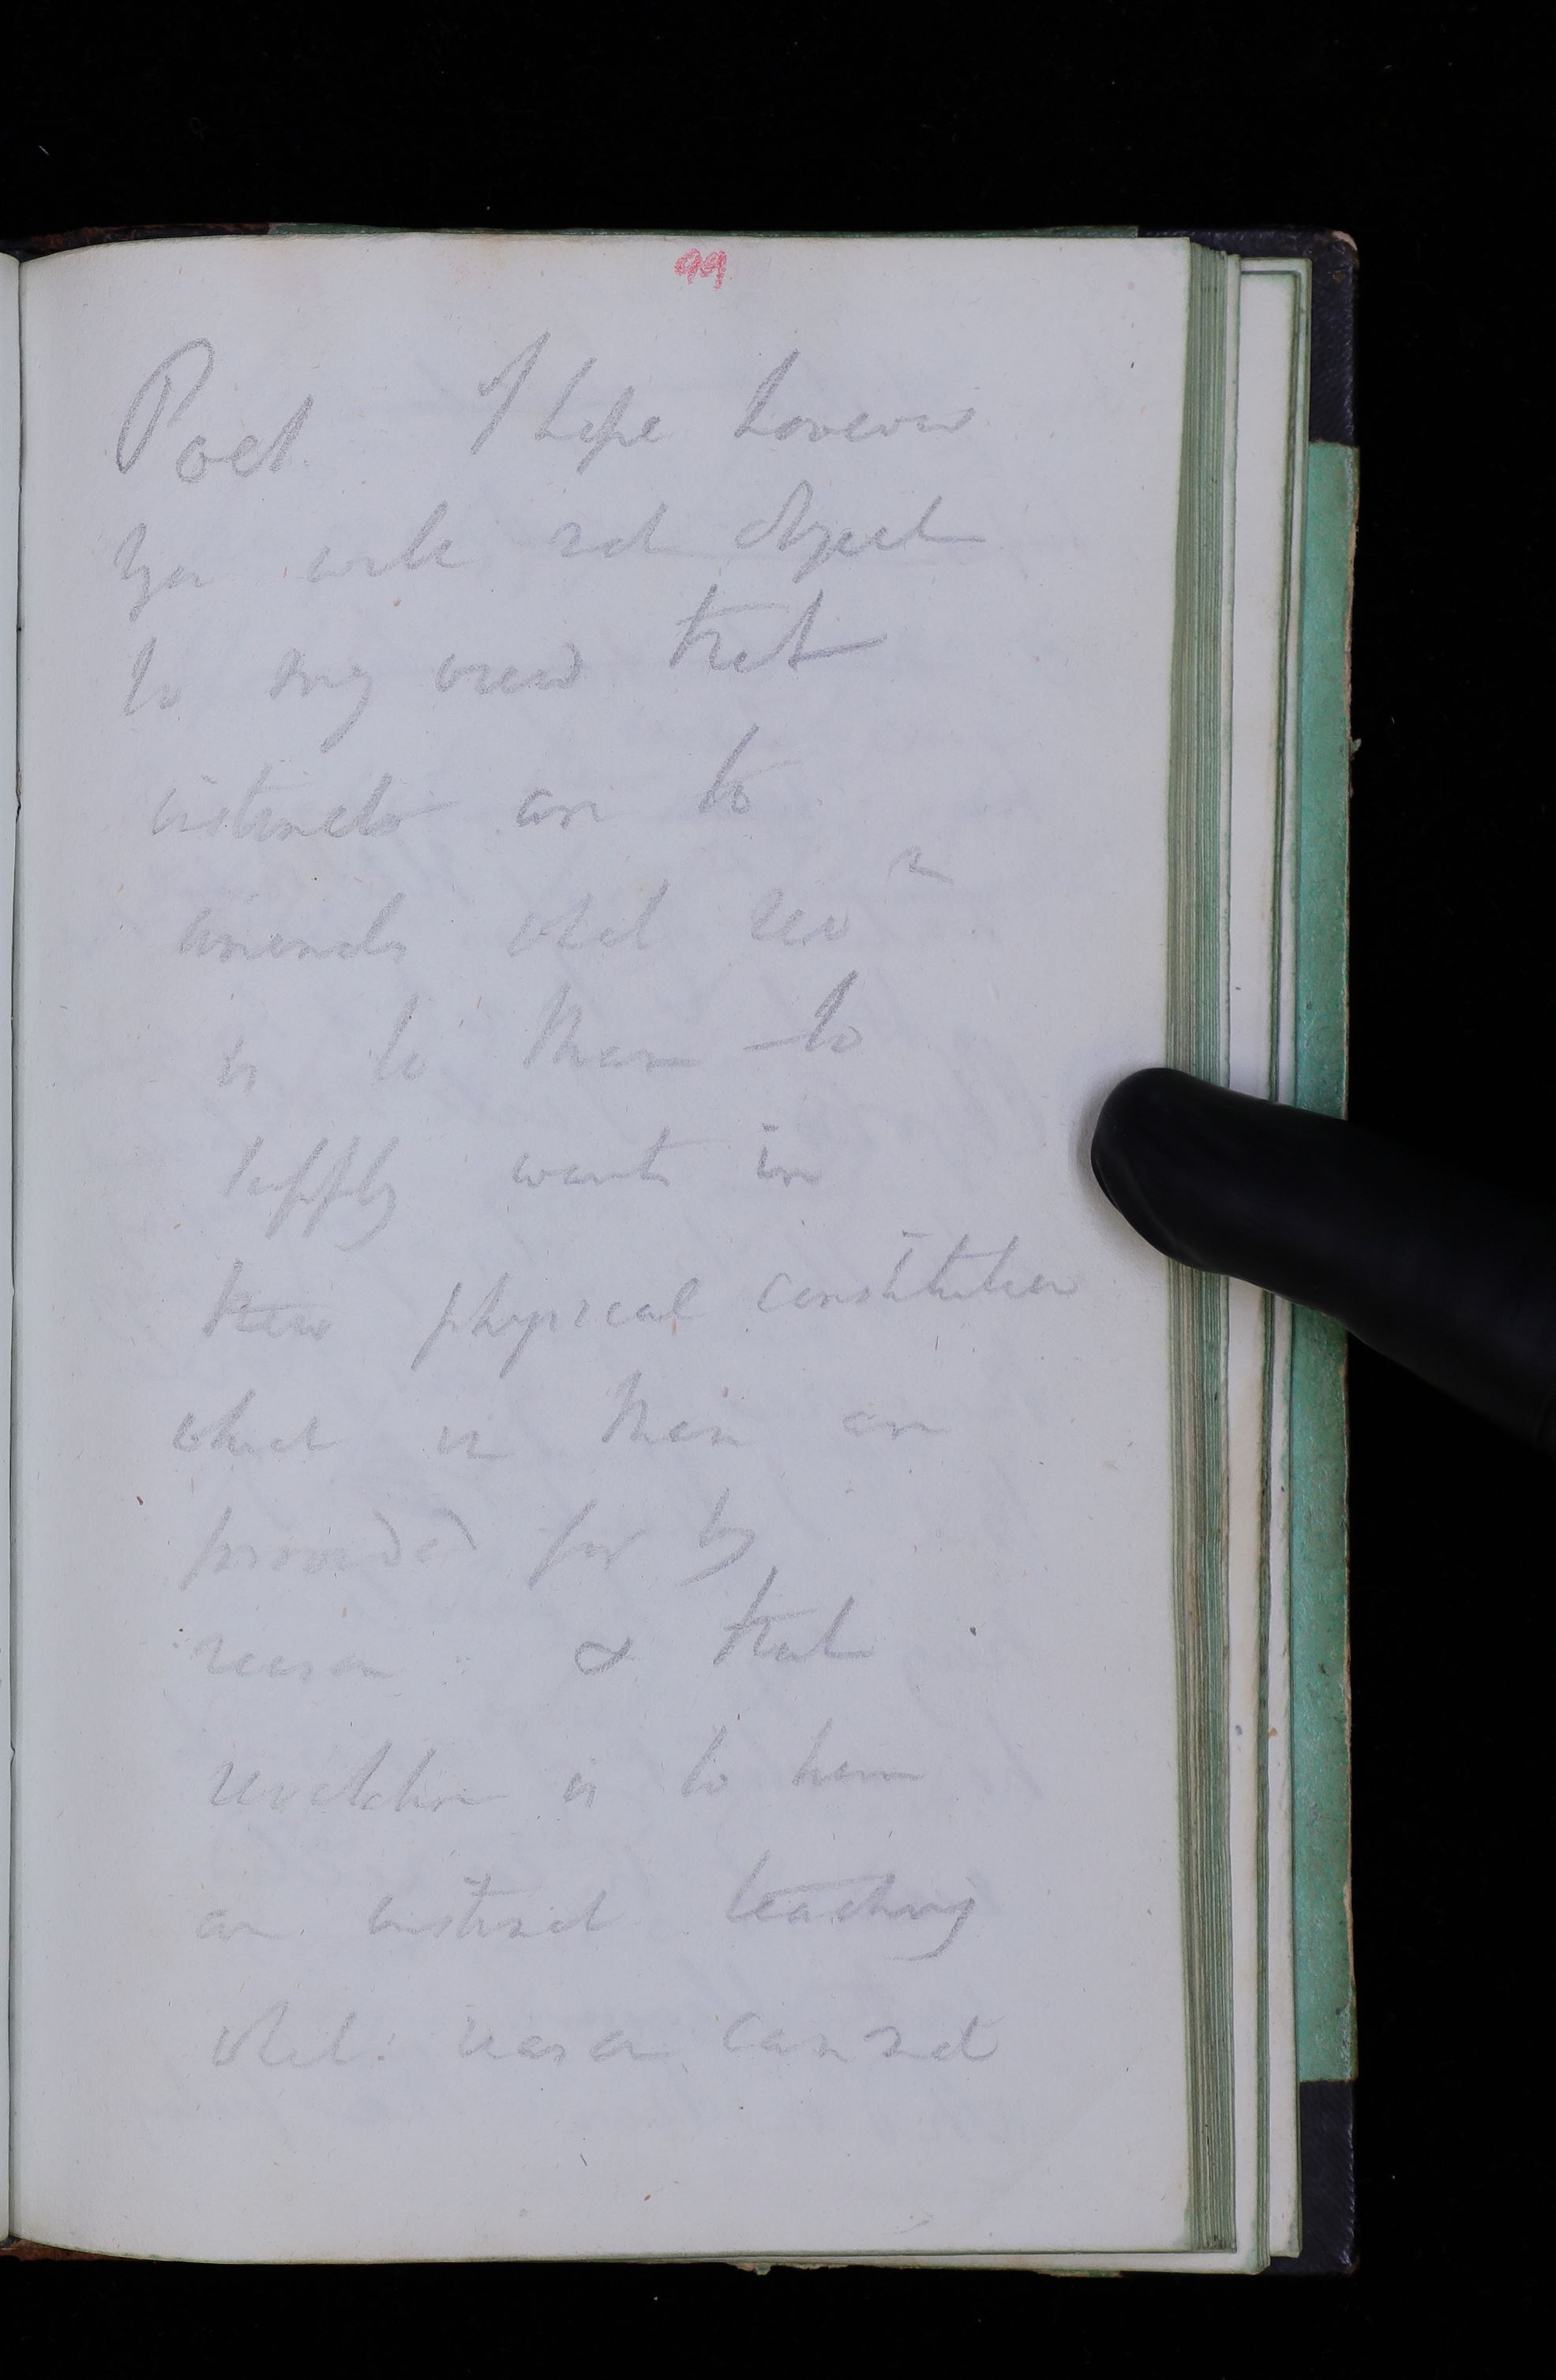 99
Poet I hope however
you will not object
to my view that
instincts are to
animals what rev^n
is to Man to
supply wants in
their physical constitution
which in Man are
provided for by
reason & that
revelation is to him
an instinct teaching
what: reason cannot